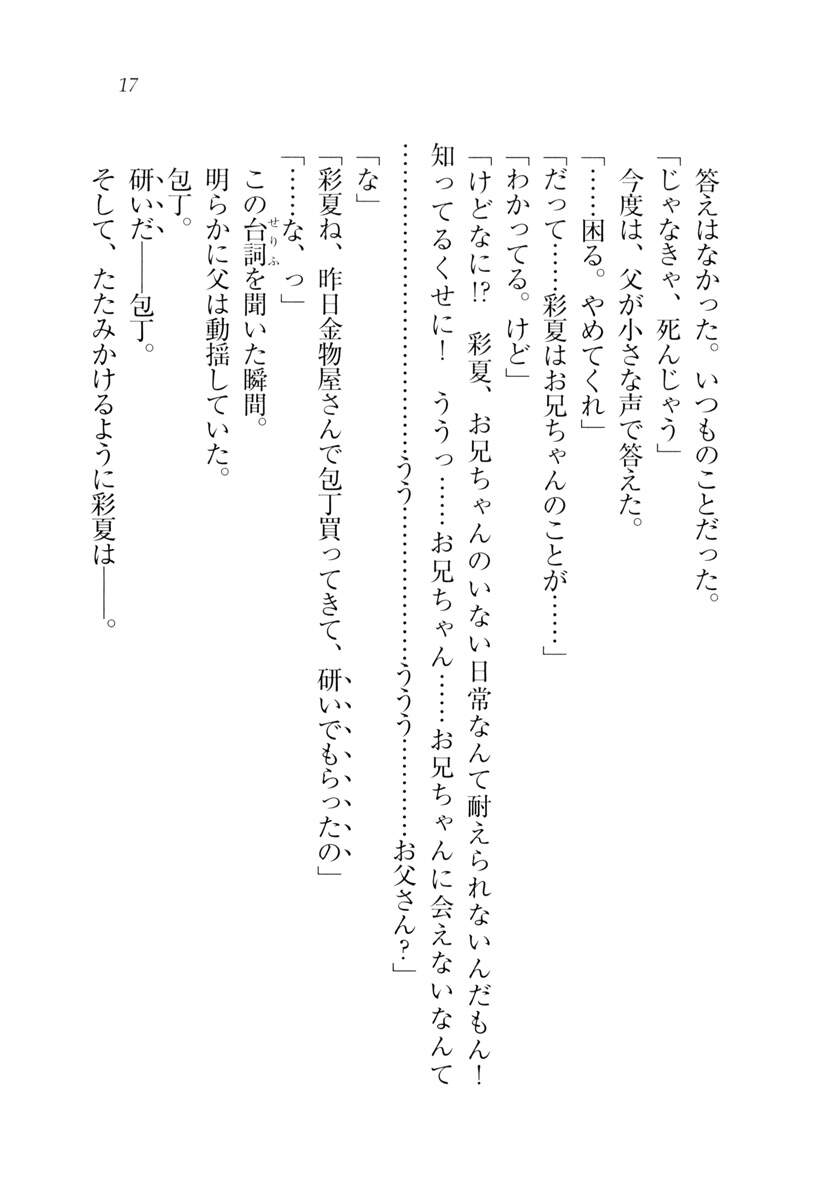 17
答えはなかった。いつものことだった。
「じゃなきゃ、死んじゃう」
今度は、父が小さな声で答えた。
「……困る。やめてくれ」
「だって……彩夏はお兄ちゃんのことが……」
「わかってる。けど」
「けどなに!?　彩夏、お兄ちゃんのいない日常なんて耐えられないんだもん！
知ってるくせに！　ううっ……お兄ちゃん……お兄ちゃんに会えないなんて
……………………………うう……………………ううう…………お父さん？」
「な」
「彩夏ね、昨日金物屋さんで包丁買ってきて、研いでもらったの」
「……な、っ」
この台詞を聞いた瞬間。
せりふ
明らかに父は動揺していた。
包丁。
研いだ――包丁。
そして、たたみかけるように彩夏は――。